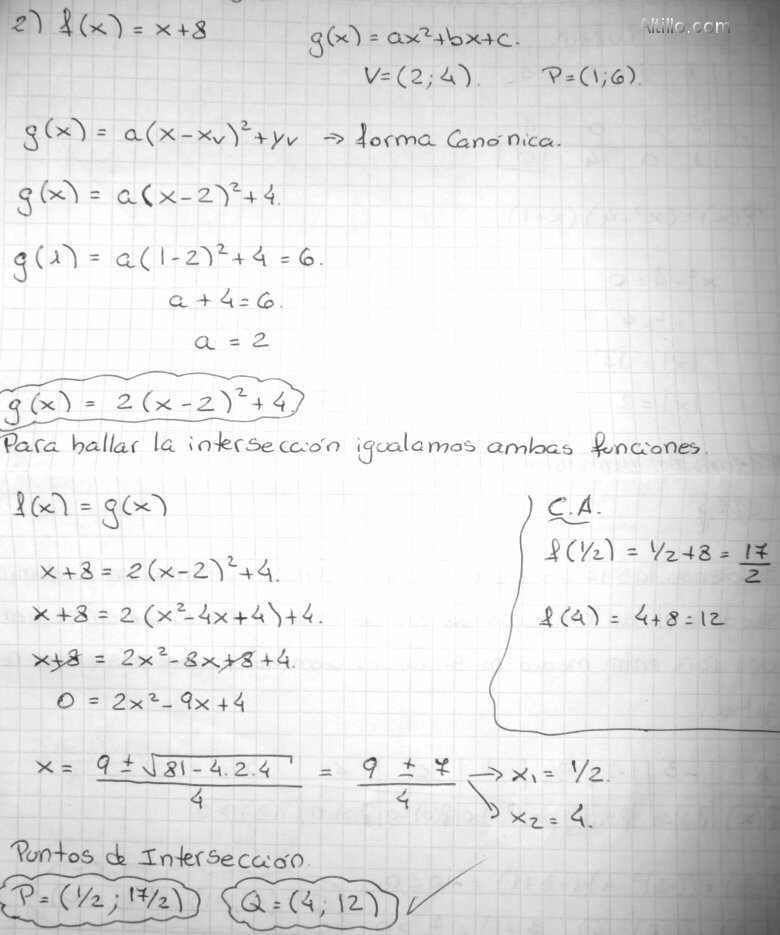 Altillo.com
2) f(x) = x+8 g(x) = ax²+bx+c.
V=(2;4). P=(1;6).
g(x) = a(x-xv)²+yv → forma Canónica.
g(x) = a(x-2)²+4.
g(1) = a(1-2)²+4 = 6.
a+4=6.
a = 2
g(x) = 2(x-2)²+4.
Para hallar la intersección igualamos ambas funciones.
f(x) = g(x)
x+8 = 2(x-2)²+4.
x+8 = 2(x²-4x+4)+4.
x+8 = 2x²-8x+8+4.
0 = 2x²-9x+4
C.A.
f(1/2) = 1/2+8 = 17/2
f(4) = 4+8=12
x = 9 ± √81-4.2.4 / 4 = 9 ± 7 / 4 → x₁ = 1/2.
→ x₂ = 4.
Puntos de Intersección.
P=(1/2; 17/2) Q=(4; 12)